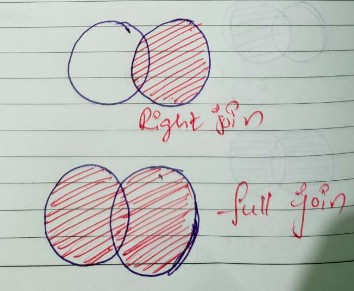 Right join
full join